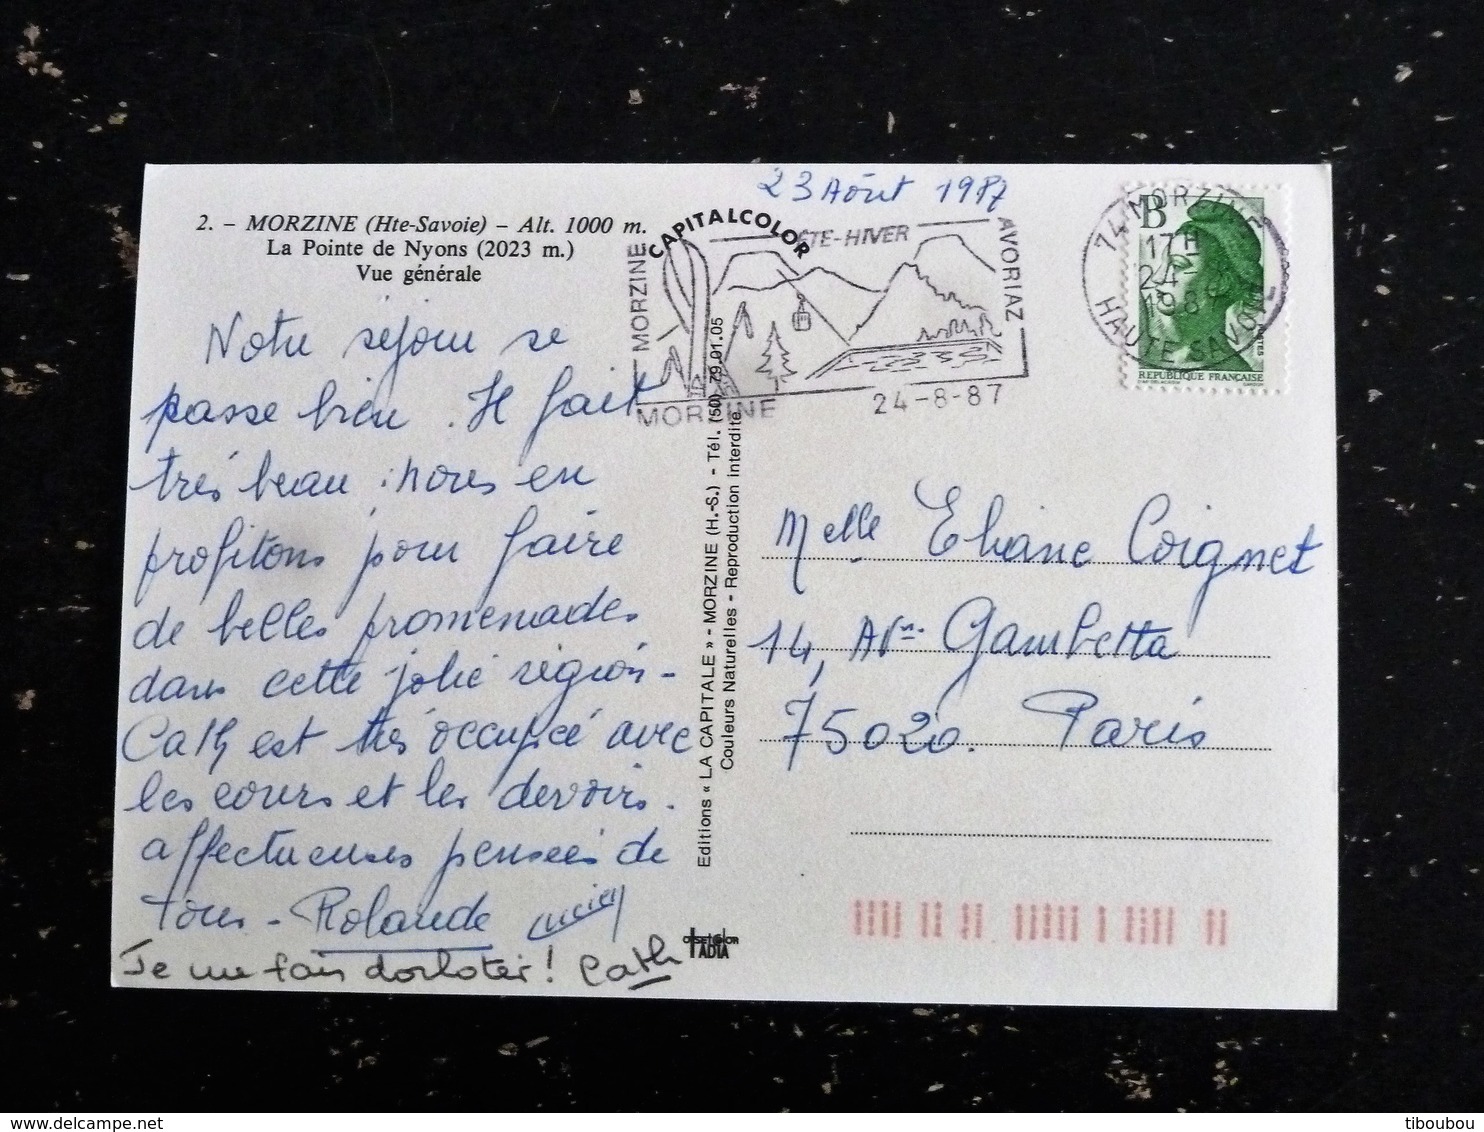 23 Août 1987
2. – MORZINE (Hte-Savoie) – Alt. 1000 m.
La Pointe de Nyons (2023 m.)
Vue générale
CAPITALCOLOR
MORZINE
ÉTE-HIVER
AVORIAZ
MORZINE
24-8-87
74 MORZINE
17H
24-8
1987
HAUTE SAVOIE
B
REPUBLIQUE FRANÇAISE
Notre séjour se
passe bien. Il fait
très beau : nous en
profitons pour faire
de belles promenades
dans cette jolie région -
Cath est très occupée avec
les cours et les devoirs.
affectueuses pensées de
tous - Rolande Lucien
Je me fais dorloter ! Cath
Editions « LA CAPITALE » - MORZINE (H.-S.) - Tél. (50) 79.01.05
Couleurs Naturelles - Reproduction interdite.
Melle Eliane Coignet
14, Av. Gambetta
75020. Paris
OFFSET COLOR
IADIA
delcampe.net
tiboubou